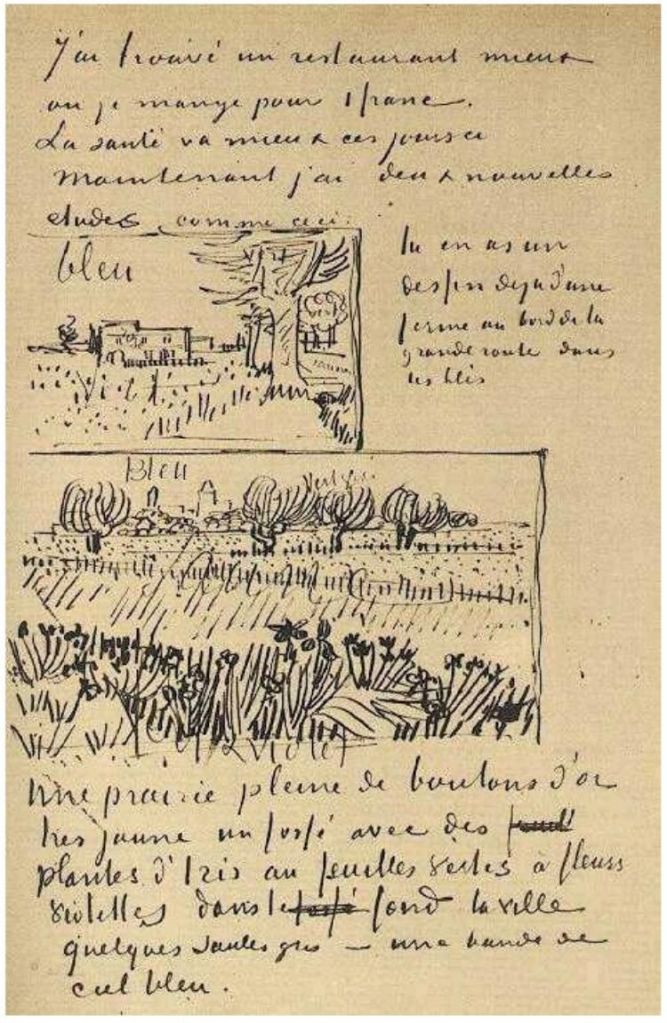 J'ai trouvé un restaurant mieux
ou je mange pour 1 franc.
La santé va mieux ces jours ci
Maintenant j'ai deux nouvelles
etudes comme ceci.
bleu
vert
tu en as un
dessin deja d'une
ferme au bord de la
grande route dans
les blés
Bleu
vert gris
violet
Une prairie pleine de boutons d'or
tres jaune un fossé avec des
plantes d'Iris au feuilles vertes à fleurs
violettes dans le fossé fond la ville
quelques saules gris – une bande de
ciel bleu.